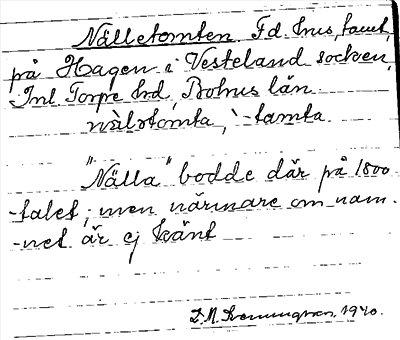 Nälletomten. Fd. hus, tomt,
på Hagen i Vesteland socken,
Inl. Torpe hd, Bohus län.
nälstomta, -tamta.
"Nälla" bodde där på 1800
-talet, men närmare om nam-
-net är ej känt
1940.